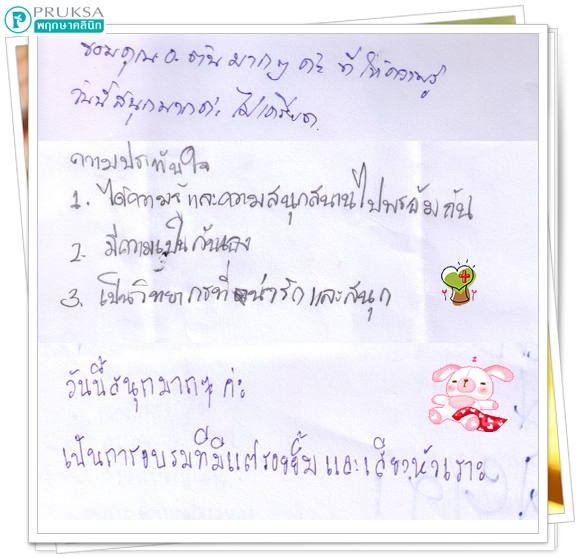 PRUKSA
พฤกษาคลินิก
ขอบคุณ อ. ตาล มากๆ ค่ะ ที่ให้ความรู้
วันนี้สนุกมากค่ะ ไม่เครียด
ความประทับใจ
1. ได้ความรู้และความสนุกสนานไปพร้อมกัน
2. มีความเป็นกันเอง
3. เป็นวิทยากรที่น่ารักและสนุก
z
วันนี้สนุกมากๆ ค่ะ
เป็นการอบรมที่มีแต่รอยยิ้มและเสียงหัวเราะ